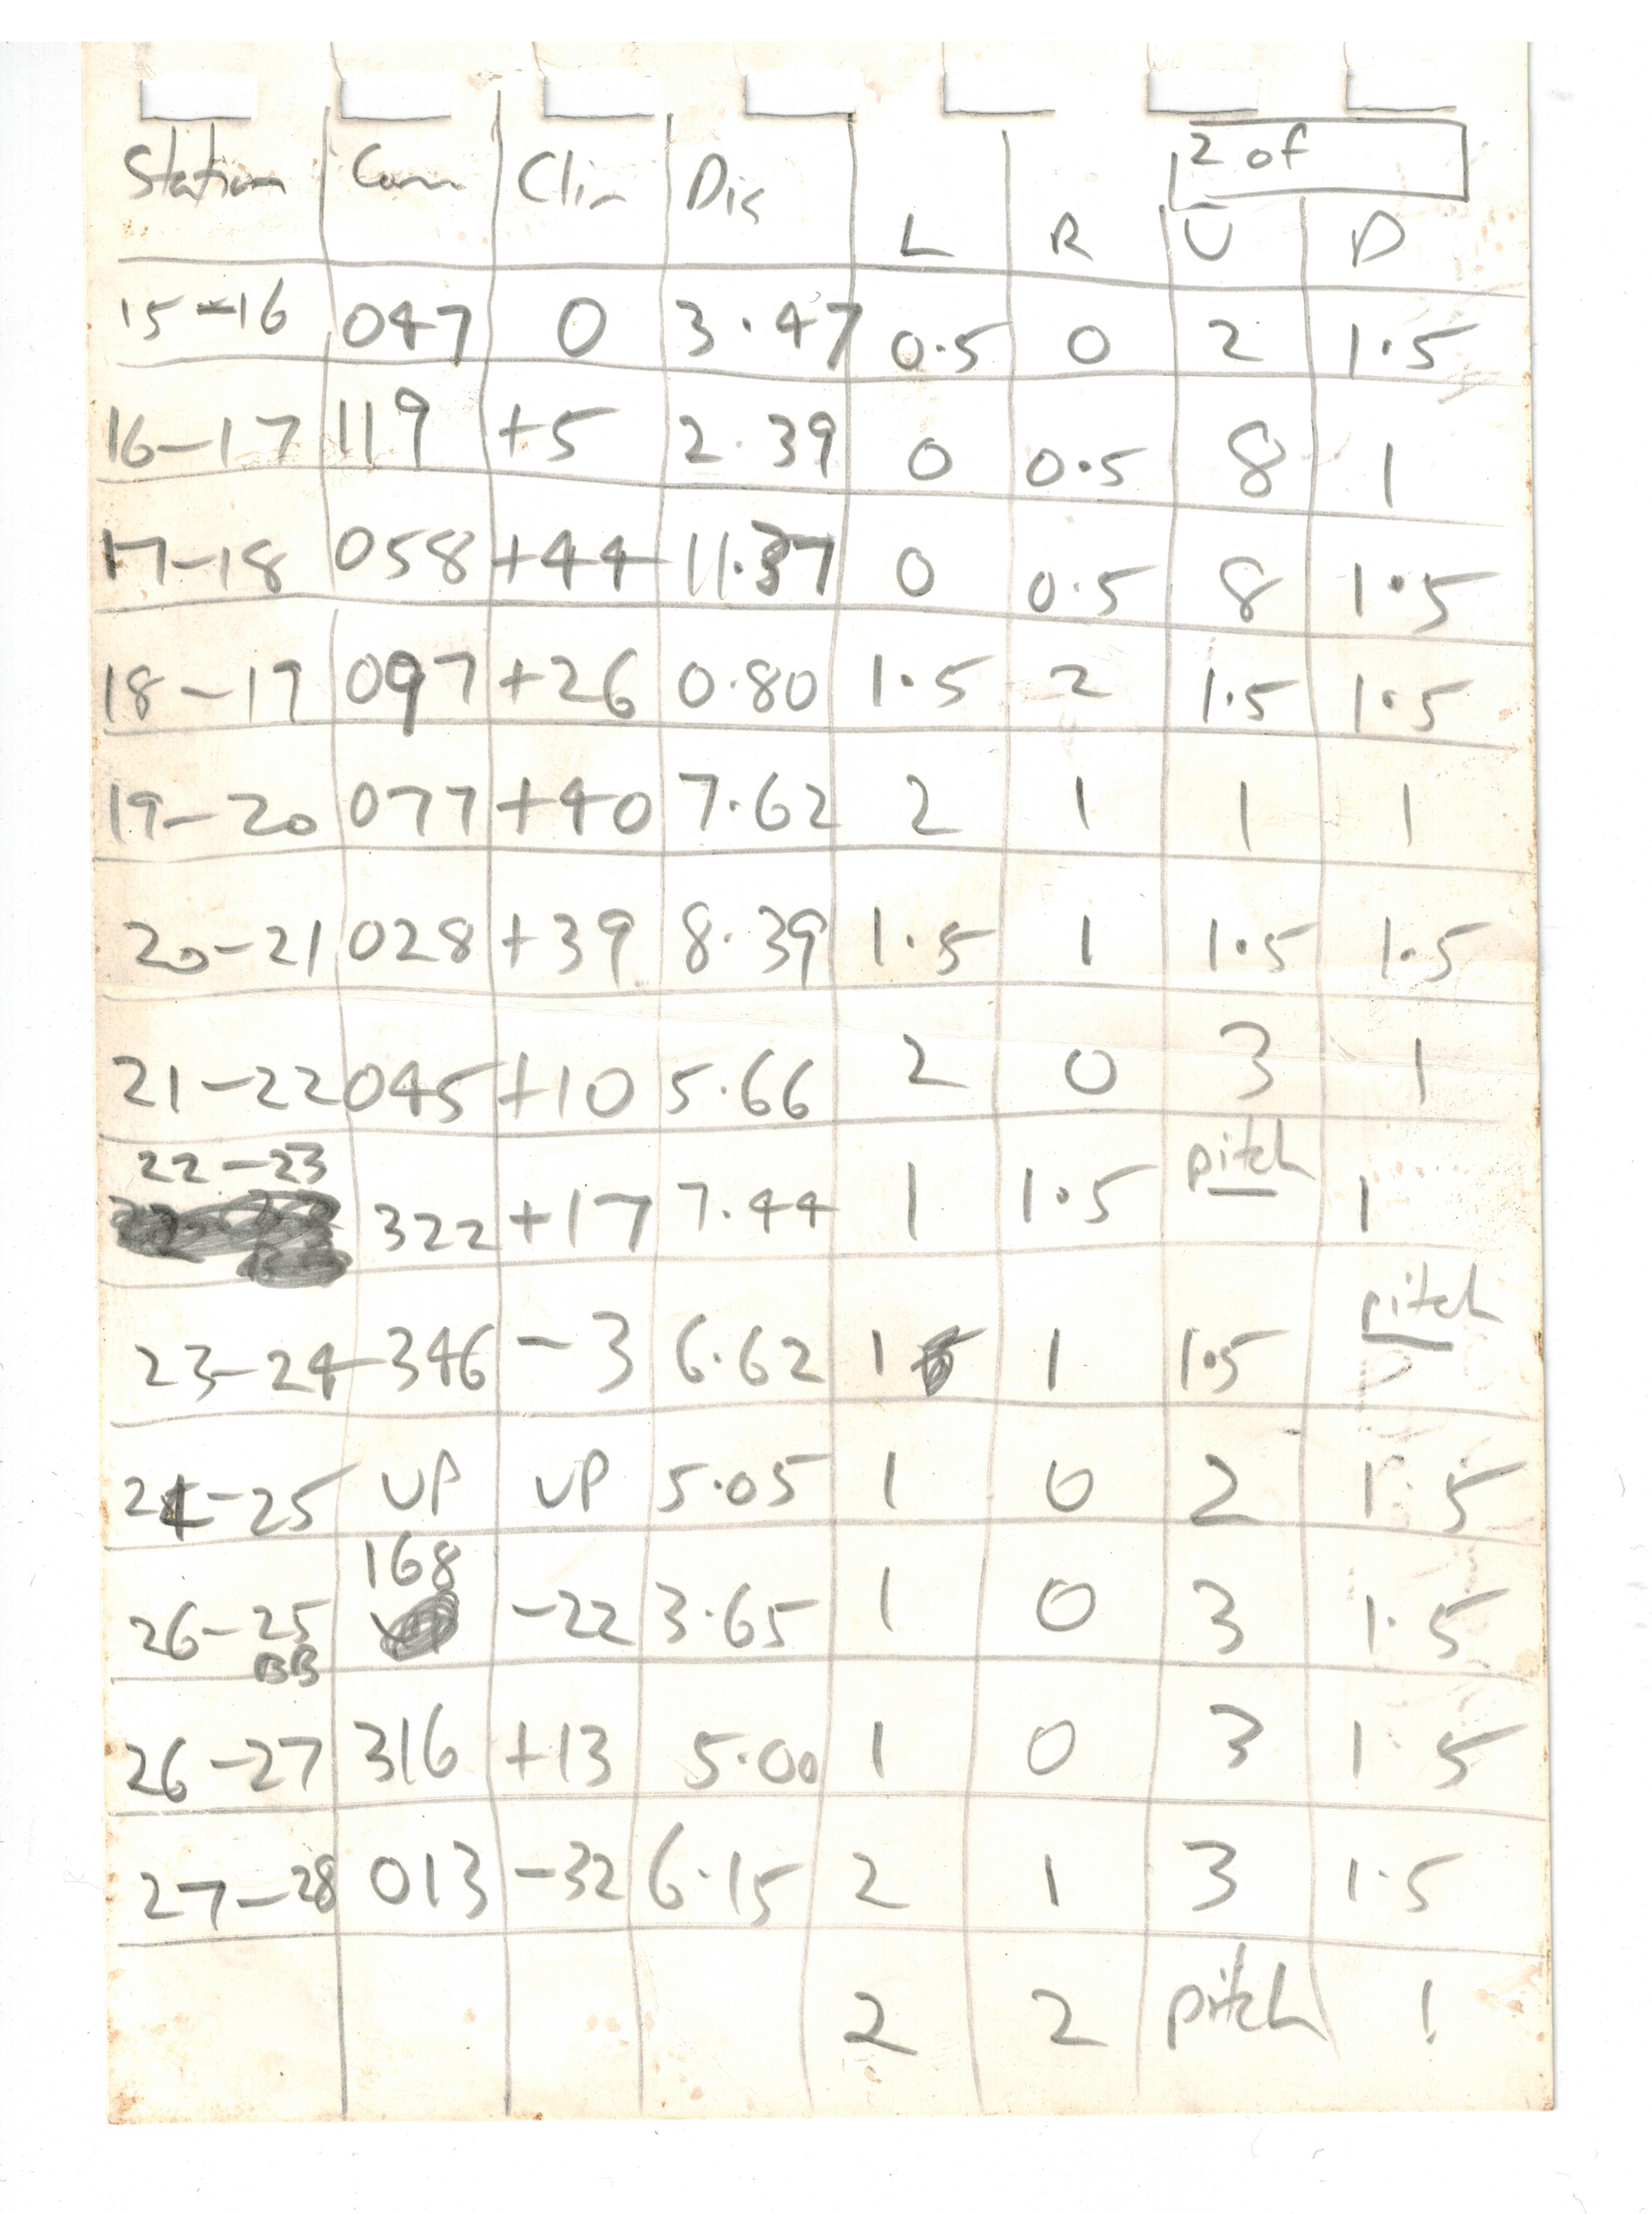 2 of
Station Com Clin Dis L R U D
15-16 047 0 3.47 0.5 0 2 1.5
16-17 119 +5 2.39 0 0.5 8 1
17-18 058 +44 11.37 0 0.5 8 1.5
18-19 097 +26 0.80 1.5 2 1.5 1.5
19-20 077 +40 7.62 2 1 1 1
20-21 028 +39 8.39 1.5 1 1.5 1.5
21-22 045 +10 5.66 2 0 3 1
22-23 322 +17 7.44 1 1.5 pitch 1
23-24 346 -3 6.62 1 1 1.5 pitch
24-25 UP UP 5.05 1 0 2 1.5
26-25 168 -22 3.65 1 0 3 1.5
BB
26-27 316 +13 5.00 1 0 3 1.5
27-28 013 -32 6.15 2 1 3 1.5
2 2 pitch 1